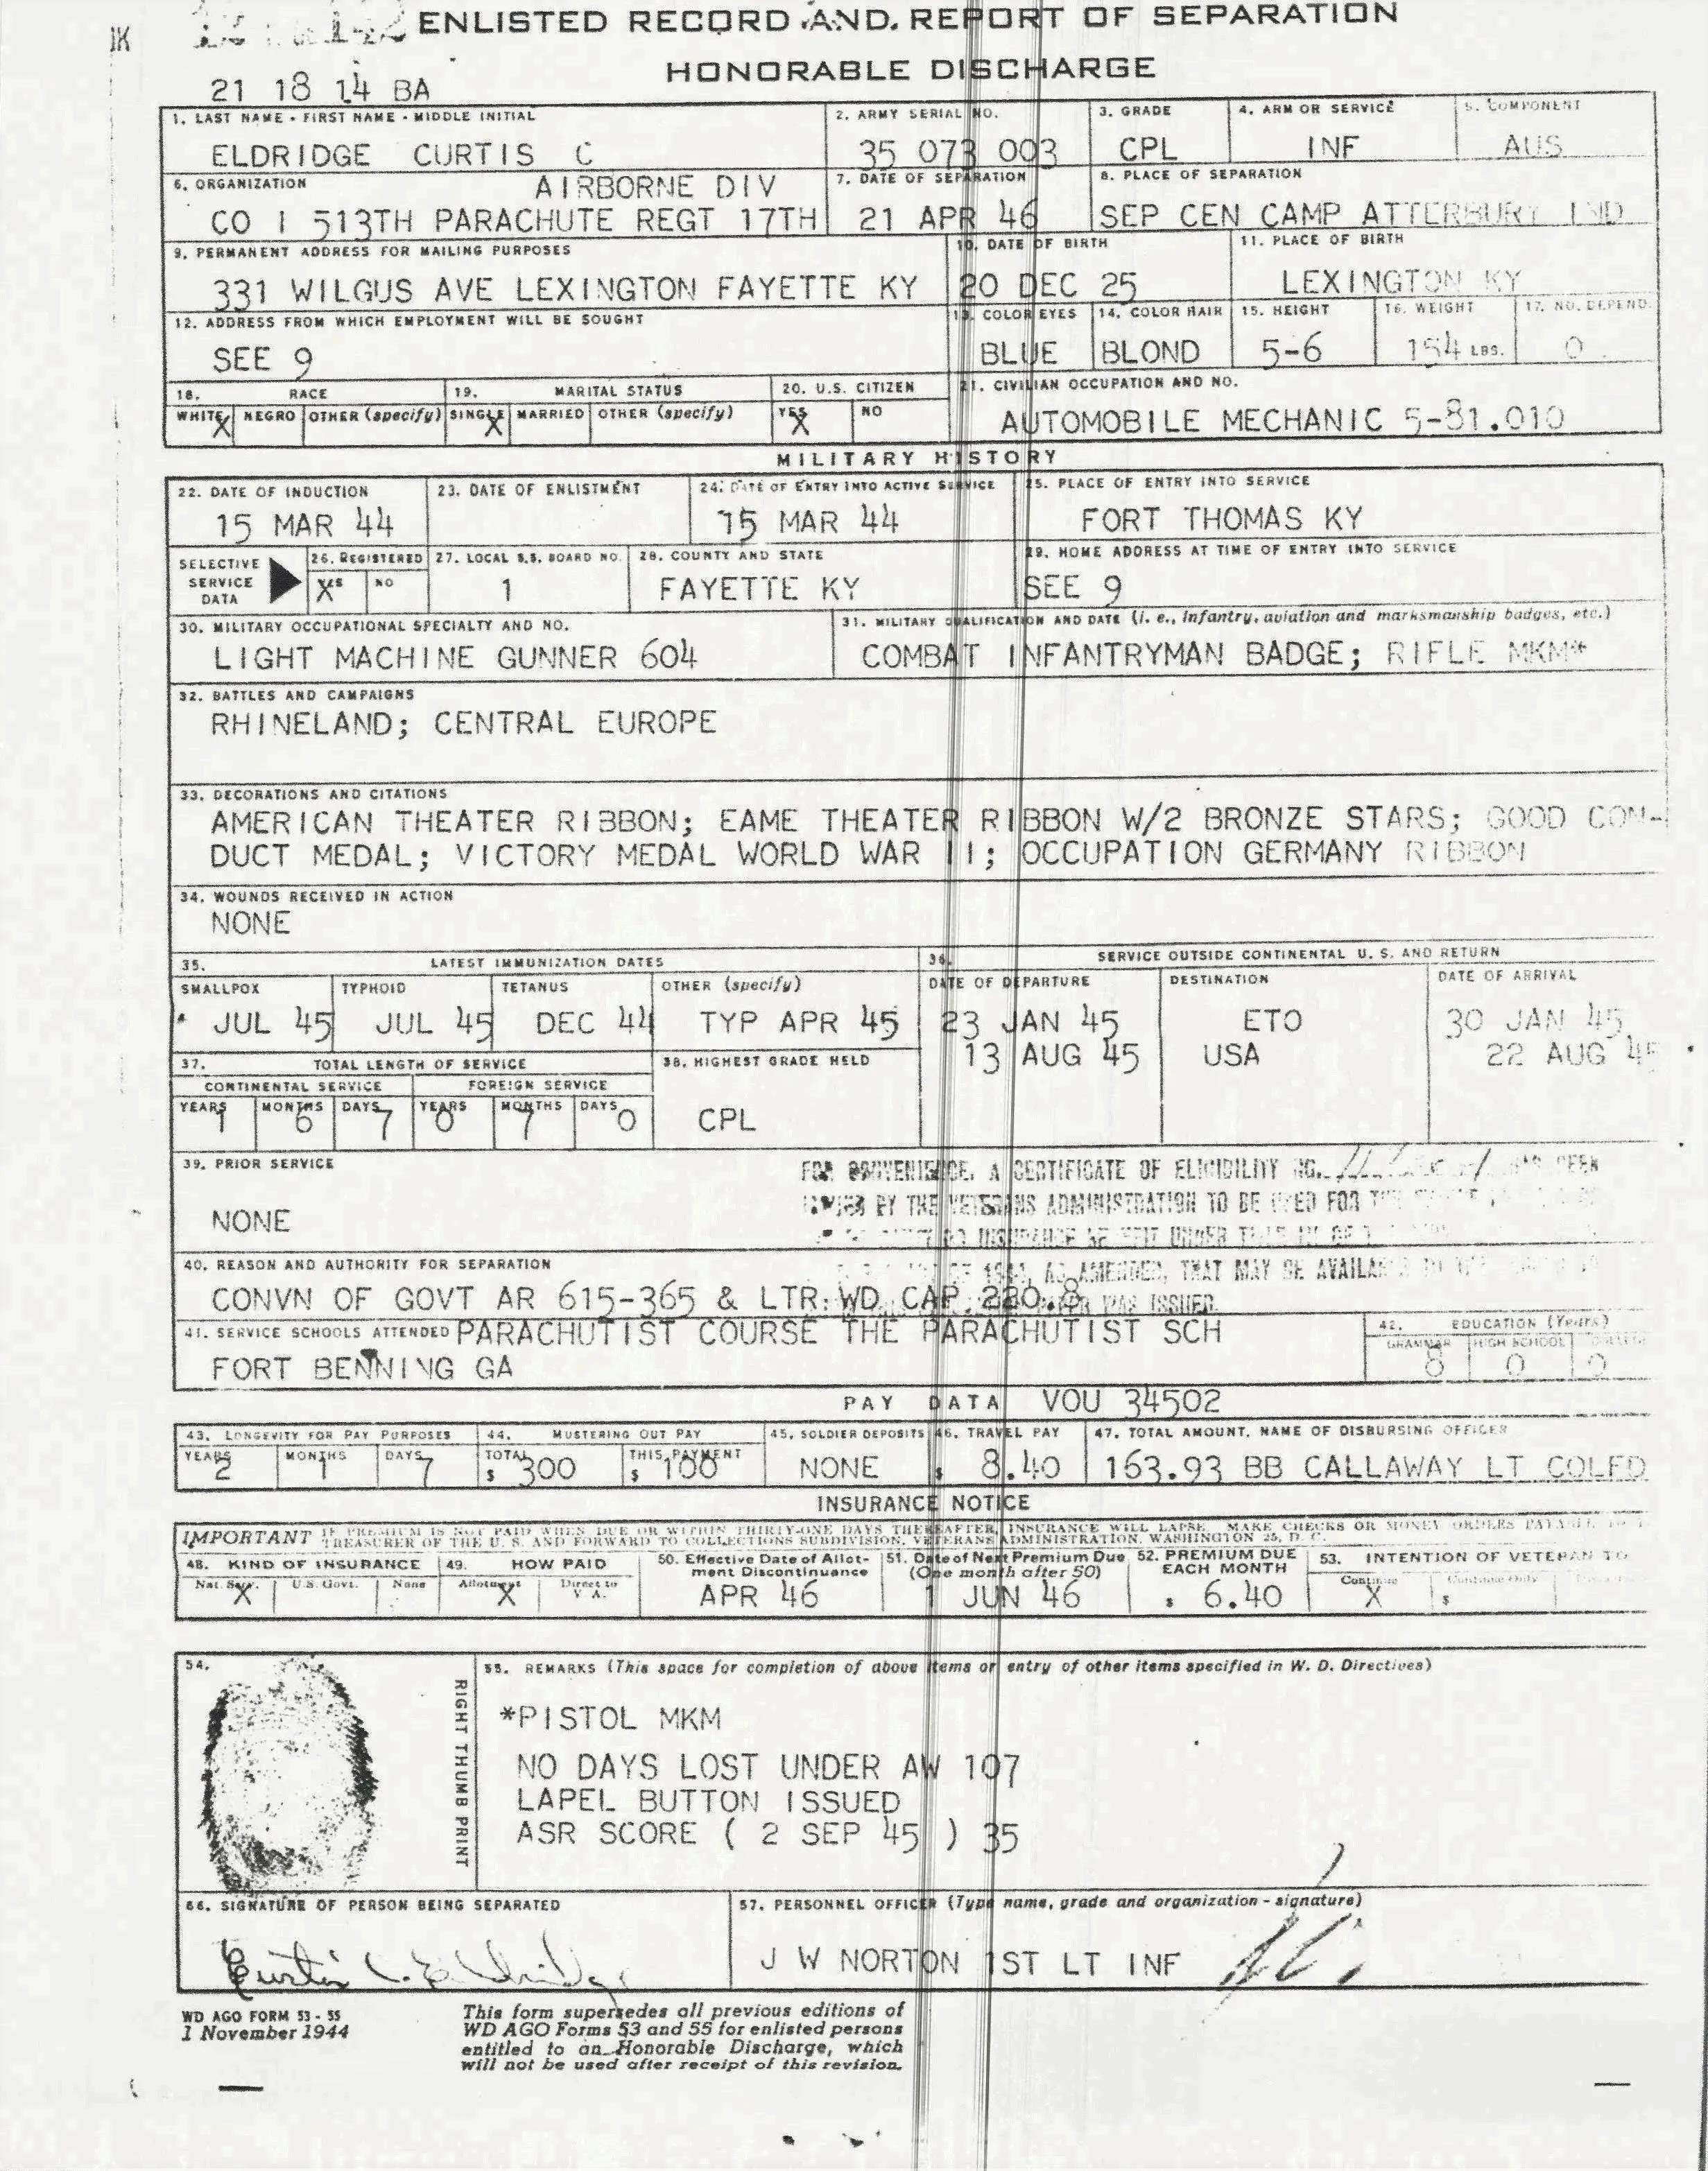 ENLISTED RECORD AND REPORT OF SEPARATION
HONORABLE DISCHARGE
21 18 14 BA
1. LAST NAME - FIRST NAME - MIDDLE INITIAL 2. ARMY SERIAL NO. 3. GRADE 4. ARM OR SERVICE 5. COMPONENT
ELDRIDGE CURTIS C 35 073 003 CPL INF AUS
6. ORGANIZATION AIRBORNE DIV 7. DATE OF SEPARATION 8. PLACE OF SEPARATION
CO I 513TH PARACHUTE REGT 17TH 21 APR 46 SEP CEN CAMP ATTERBURY IND
9. PERMANENT ADDRESS FOR MAILING PURPOSES 10. DATE OF BIRTH 11. PLACE OF BIRTH
331 WILGUS AVE LEXINGTON FAYETTE KY 20 DEC 25 LEXINGTON KY
12. ADDRESS FROM WHICH EMPLOYMENT WILL BE SOUGHT 13. COLOR EYES 14. COLOR HAIR 15. HEIGHT 16. WEIGHT 17. NO. DEPEND.
SEE 9 BLUE BLOND 5-6 154 LBS. 0
18. RACE 19. MARITAL STATUS 20. U.S. CITIZEN 21. CIVILIAN OCCUPATION AND NO.
WHITE X NEGRO OTHER (specify) SINGLE X MARRIED OTHER (specify) YES X NO AUTOMOBILE MECHANIC 5-81.010
MILITARY HISTORY
22. DATE OF INDUCTION 23. DATE OF ENLISTMENT 24. DATE OF ENTRY INTO ACTIVE SERVICE 25. PLACE OF ENTRY INTO SERVICE
15 MAR 44 15 MAR 44 FORT THOMAS KY
SELECTIVE SERVICE DATA 26. REGISTERED 27. LOCAL S.S. BOARD NO. 28. COUNTY AND STATE 29. HOME ADDRESS AT TIME OF ENTRY INTO SERVICE
YES X NO 1 FAYETTE KY SEE 9
30. MILITARY OCCUPATIONAL SPECIALTY AND NO. 31. MILITARY QUALIFICATION AND DATE (i. e., infantry, aviation and marksmanship badges, etc.)
LIGHT MACHINE GUNNER 604 COMBAT INFANTRYMAN BADGE; RIFLE MKM*
32. BATTLES AND CAMPAIGNS
RHINELAND; CENTRAL EUROPE
33. DECORATIONS AND CITATIONS
AMERICAN THEATER RIBBON; EAME THEATER RIBBON W/2 BRONZE STARS; GOOD CON-
DUCT MEDAL; VICTORY MEDAL WORLD WAR II; OCCUPATION GERMANY RIBBON
34. WOUNDS RECEIVED IN ACTION
NONE
35. LATEST IMMUNIZATION DATES 36. SERVICE OUTSIDE CONTINENTAL U. S. AND RETURN
SMALLPOX TYPHOID TETANUS OTHER (specify) DATE OF DEPARTURE DESTINATION DATE OF ARRIVAL
JUL 45 JUL 45 DEC 44 TYP APR 45 23 JAN 45 ETO 30 JAN 45
37. TOTAL LENGTH OF SERVICE 38. HIGHEST GRADE HELD 13 AUG 45 USA 22 AUG 45
CONTINENTAL SERVICE FOREIGN SERVICE
YEARS MONTHS DAYS YEARS MONTHS DAYS
1 6 7 0 7 0 CPL
39. PRIOR SERVICE A CERTIFICATE OF ELIGIBILITY NO.
BY THE VETERANS ADMINISTRATION TO BE USED FOR
NONE
40. REASON AND AUTHORITY FOR SEPARATION AS AMENDED, THAT MAY BE
CONVN OF GOVT AR 615-365 & LTR WD CAP 220.8 WAS ISSUED
41. SERVICE SCHOOLS ATTENDED PARACHUTIST COURSE THE PARACHUTIST SCH 42. EDUCATION (Years)
GRAMMAR HIGH SCHOOL COLLEGE
FORT BENNING GA 8 0 0
PAY DATA VOU 34502
43. LONGEVITY FOR PAY PURPOSES 44. MUSTERING OUT PAY 45. SOLDIER DEPOSITS 46. TRAVEL PAY 47. TOTAL AMOUNT, NAME OF DISBURSING OFFICER
YEARS 2 MONTHS 1 DAYS 7 TOTAL $ 300 THIS PAYMENT $ 100 NONE $ 8.40 163.93 BB CALLAWAY LT COLFD
INSURANCE NOTICE
IMPORTANT IF PREMIUM IS NOT PAID WHEN DUE OR WITHIN THIRTY-ONE DAYS THEREAFTER, INSURANCE WILL LAPSE. MAKE CHECKS OR MONEY ORDERS PAYABLE TO
TREASURER OF THE U. S. AND FORWARD TO COLLECTIONS SUBDIVISION, VETERANS ADMINISTRATION, WASHINGTON 25, D. C.
48. KIND OF INSURANCE 49. HOW PAID 50. Effective Date of Allotment Discontinuance 51. Date of Next Premium Due (One month after 50) 52. PREMIUM DUE EACH MONTH 53. INTENTION OF VETERAN TO
Nat. Serv. X U.S. Govt. None Allotment X Direct to V. A. APR 46 1 JUN 46 $ 6.40 Continue X Continue Only $
54. 55. REMARKS (This space for completion of above items or entry of other items specified in W. D. Directives)
RIGHT THUMB PRINT
*PISTOL MKM
NO DAYS LOST UNDER AW 107
LAPEL BUTTON ISSUED
ASR SCORE ( 2 SEP 45 ) 35
56. SIGNATURE OF PERSON BEING SEPARATED 57. PERSONNEL OFFICER (Type name, grade and organization - signature)
Curtis C. Eldridge J W NORTON 1ST LT INF
WD AGO FORM 53 - 55
1 November 1944
This form supersedes all previous editions of
WD AGO Forms 53 and 55 for enlisted persons
entitled to an Honorable Discharge, which
will not be used after receipt of this revision.